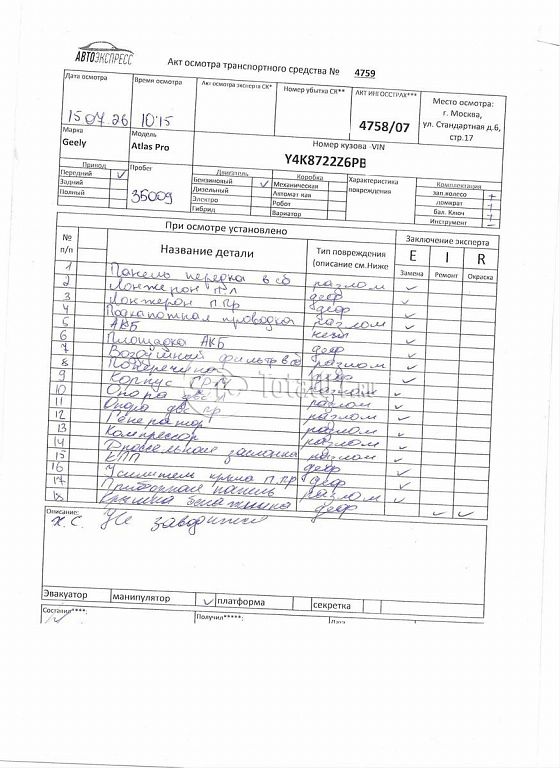 АВТОЭКСПРЕСС
Акт осмотра транспортного средства № 4759
Дата осмотра
Время осмотра
Акт осмотра эксперта СК*
Номер убытка СК**
АКТ ИНГОССТРАХ***
Место осмотра:
г. Москва,
ул. Стандартная д.6,
стр.17
15 07. 26
10 15
4758/07
Марка
Модель
Номер кузова VIN
Geely
Atlas Pro
Y4K8722Z6PB
Привод
Пробег
Двигатель
Коробка
Характеристика повреждения
Комплектация
Передний
Бензиновый
Механическая
зап.колесо +
Задний
Дизельный
Автомат кая
домкрат +
Полный
35009
Электро
Робот
Бал. Ключ +
Гибрид
Вариатор
Инструмент -
При осмотре установлено
Заключение эксперта
№ п/п
Название детали
Тип повреждения
(описание см.Ниже
E I R
Замена Ремонт Окраска
1 Панель передка в сб разлом
2 Лонжерон П л деф
3 Лонжерон П.Пр деф
4 Подкапотная проводка разлом
5 АКБ
6 Площадка АКБ деф
7 Воздушный фильтр в сб разлом
8 Поперечина деф
9 Корпус разлом
10 Опора двс разлом
11 Опора двс пр разлом
12 Генератор разлом
13 Компрессор разлом
14 Дроссельная заслонка разлом
15 КПП деф
16 Усилитель крыла П.Пр деф
17 Приборная панель разлом
18 Крышка багажника деф
Total
Описание:
х.с. Не заводится
Эвакуатор
манипулятор
платформа
секретка
Составил****:
Получил*****: